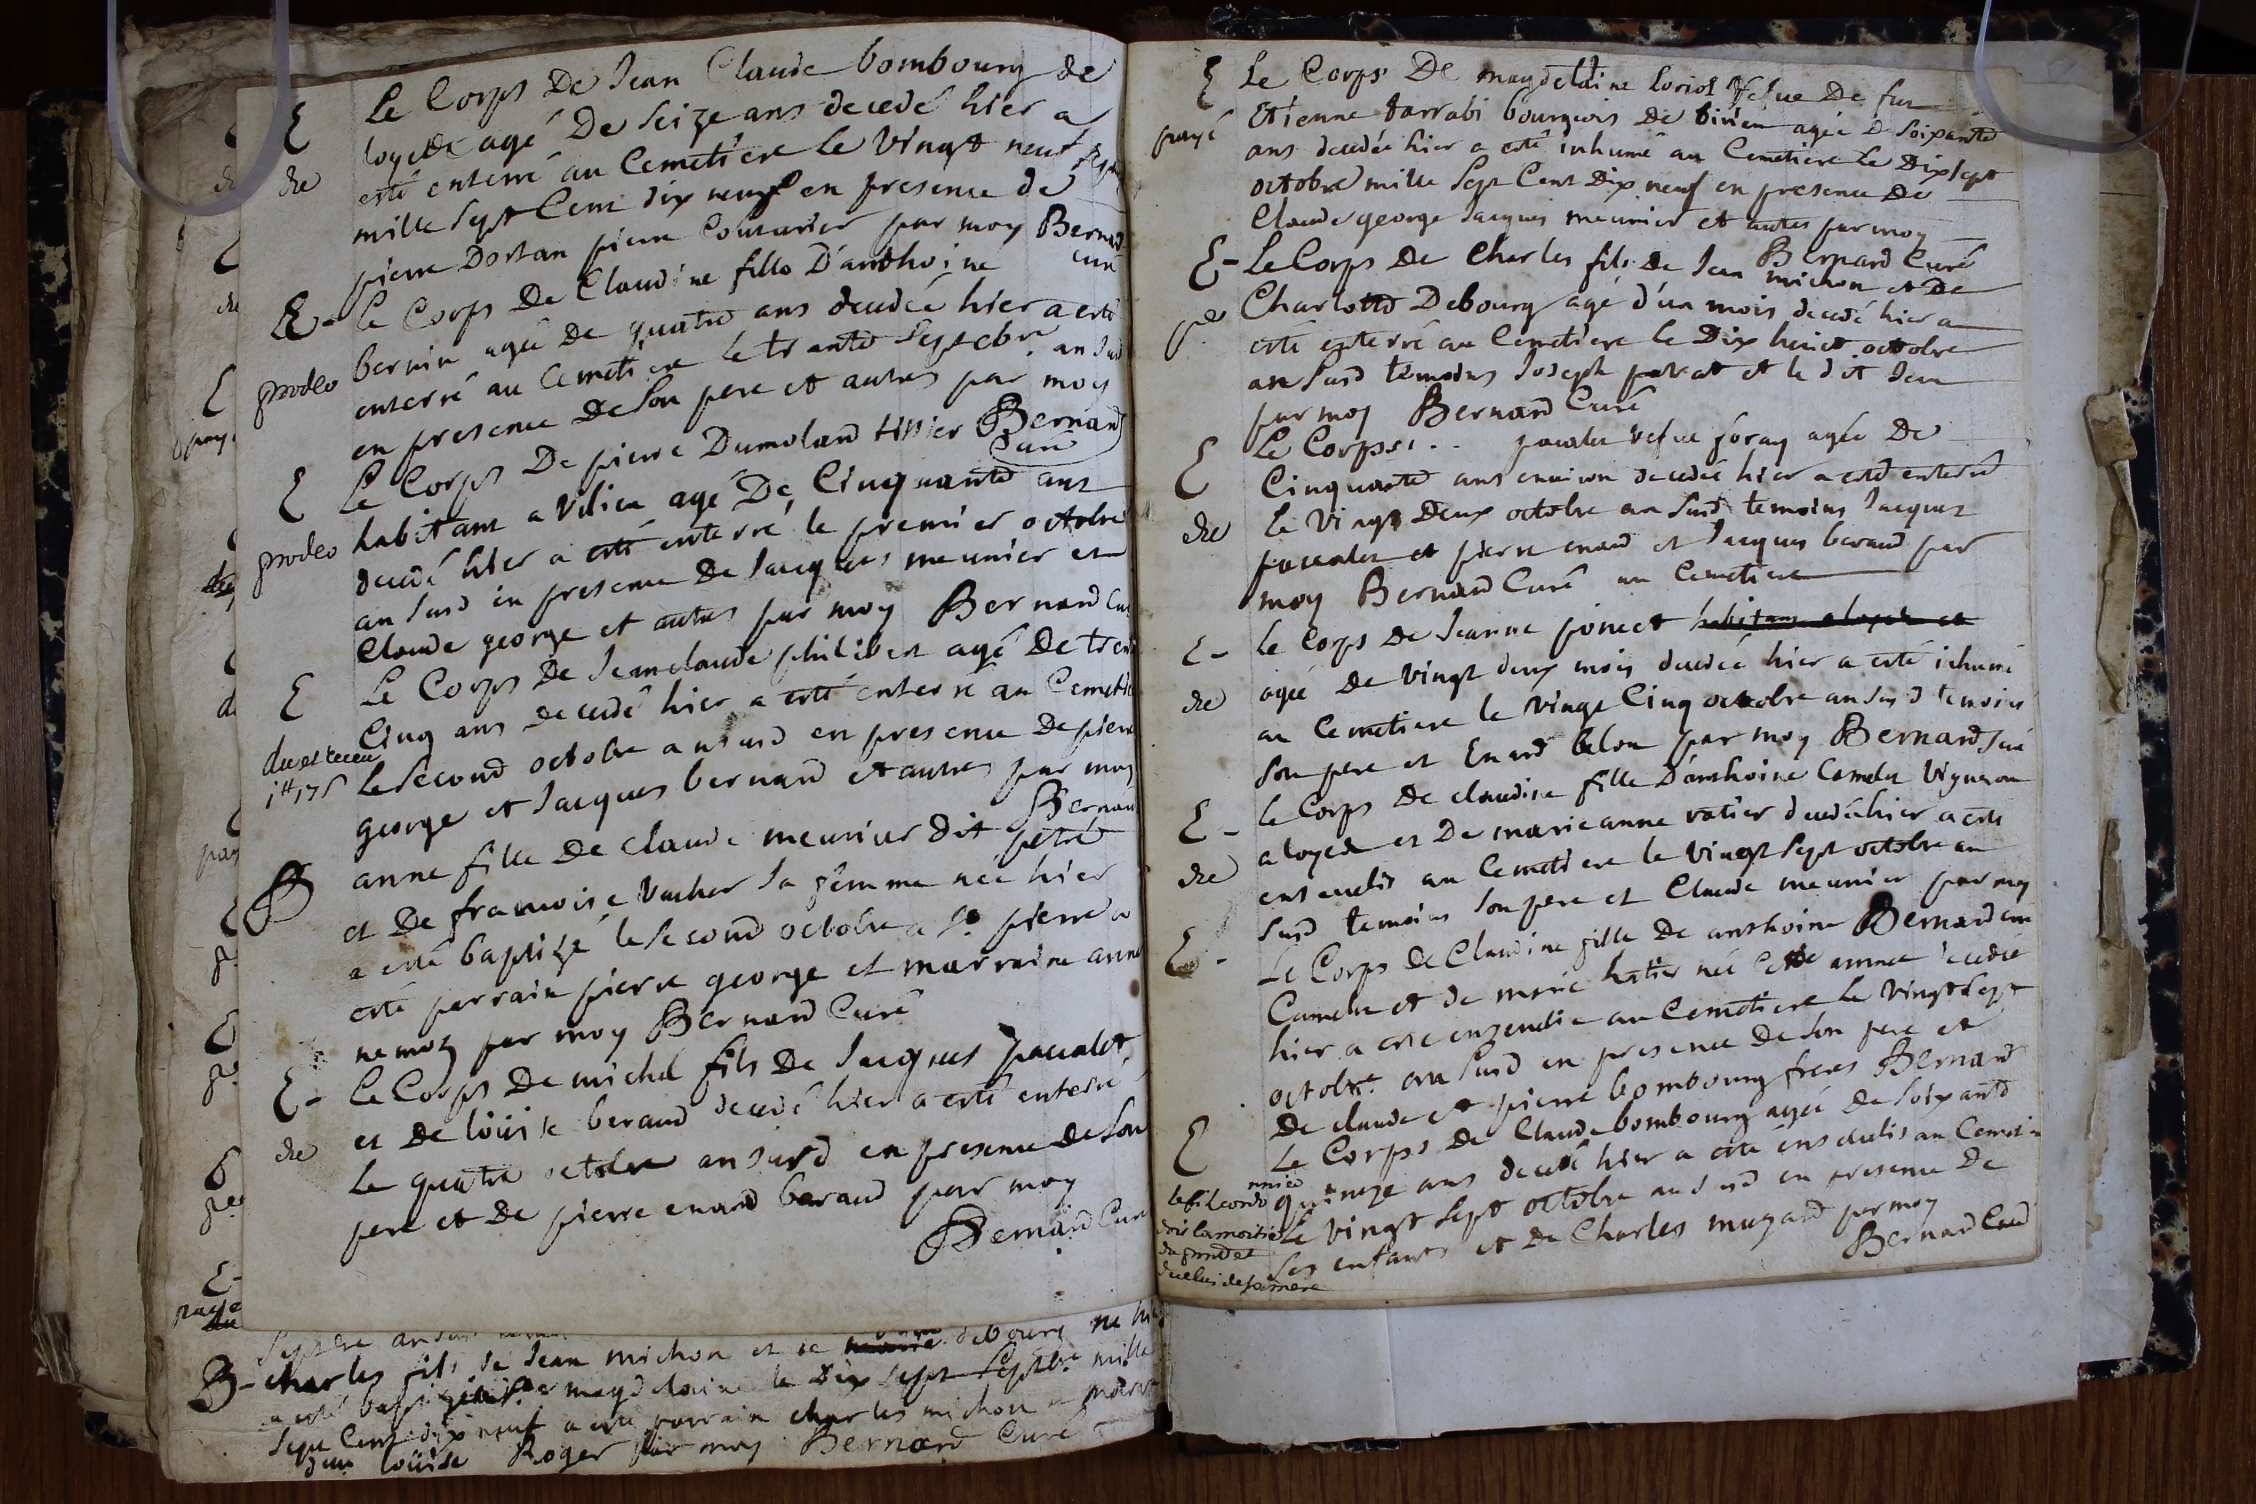 E Le Corps De Jean Claude bombourg de
loyette agé De seize ans decedé hier a
due esté enterré au Cemetiere le vingt neuf sept
mille sept Cent dix neuf en presence de
pierre Dortan pierre Couturier par moy Bernard
curé
E - Le Corps De Claudine fille D'anthoine
bernin agée De quatre ans decedée hier a esté
prodeo enterré au Cemetiere le trante septebre an susd
en presence De son pere et autres par moy
Bernard
Curé
E Le Corps De pierre Dumolard tissier
habitant a vilieu agé De Cinquante ans
prodeo decedé hier a esté enterré le premier octobre
an susd en presence De Jacques meunier et
Claude george et autres par moy Bernard Curé
E Le Corps De Jean claude philibert agé De trente
Cinq ans decedé hier a esté enterré au Cemetiere
due et receu le second octobre an susd en presence De pierre
1tt 17s george et Jacques bernard et autres par moy
Bernard
B anne fille De claude meunier Dit petre
et De francoise vacher sa femme née hier
a esté baptizé le second octobre a St pierre a
esté parrain pierre george et marraine anne
nemoz par moy Bernard Curé
E - Le Corps De michel fils De Jacques pacalet
et De loüise beraud decedé hier a esté enterré
due le quatre octobre an susd en presence De son
pere et De pierre enard beraud par moy
Bernard Curé
B - charles fils de Jean michon et de debourg né hier
a esté baptizé magdelaine le Dix sept septbre mille
sept Cent dix neuf a esté parrain charles michon et marraine
loüise Roger par moy Bernard Curé
E Le Corps De magdelaine loriot vefue De fut
payé Etienne tarrabi bourgeois De virieu agée De soixante
ans decedée hier a esté inhumé au Cemetiere Le Dix sept
octobre mille sept Cent Dix neuf en presence De
Claude george Jacques meunier et autres par moy
Bernard Curé
E - Le Corps De Charles fils De Jean michon et De
Charlotte Debourg agé d'un mois decedé hier a
esté enterré au Cemetiere le Dix huict octobre
an susd temoins Joseph et le dit Jean
par moy Bernard Curé
E Le Corps . . . pacalet vefue foray agée De
Cinquante ans enuiron decedée hier a esté enterré
due le vingt Deux octobre an susd temoins Jacques
pacalet et pierre enard et Jacques beraud par
moy Bernard Curé au Cemetiere
E - Le Corps De Jeanne ponect habitans a loyete et
agée De vingt deux mois decedée hier a esté inhumé
due au Cemetiere le vingt Cinq octobre an susd temoins
son pere et Enard belon par moy Bernard Curé
E - Le Corps De claudine fille D'anthoine Camelet vigneron
a loyete et De marie anne ratier decedé hier a esté
due enseuelis au Cemetiere le vingt sept octobre an
susd temoins son pere et Claude meunier par moy
Bernard curé
E - Le Corps De Claudine fille De anthoine
Camelet et de marie ratier née Cette année decedée
hier a esté enseuelie au Cemetiere le vingt sept
octobre an susd en presence De son pere et
De claude et pierre bombourg freres Bernard
E Le Corps De Claude bombourg agée De soixante
quinze ans decedé hier a esté enseuelis au Cemetiere
Le vingt sept octobre an susd en presence De
ses enfants et De Charles muzard par moy
Bernard Curé
doit la moitié
du grand et
celui de sa mere